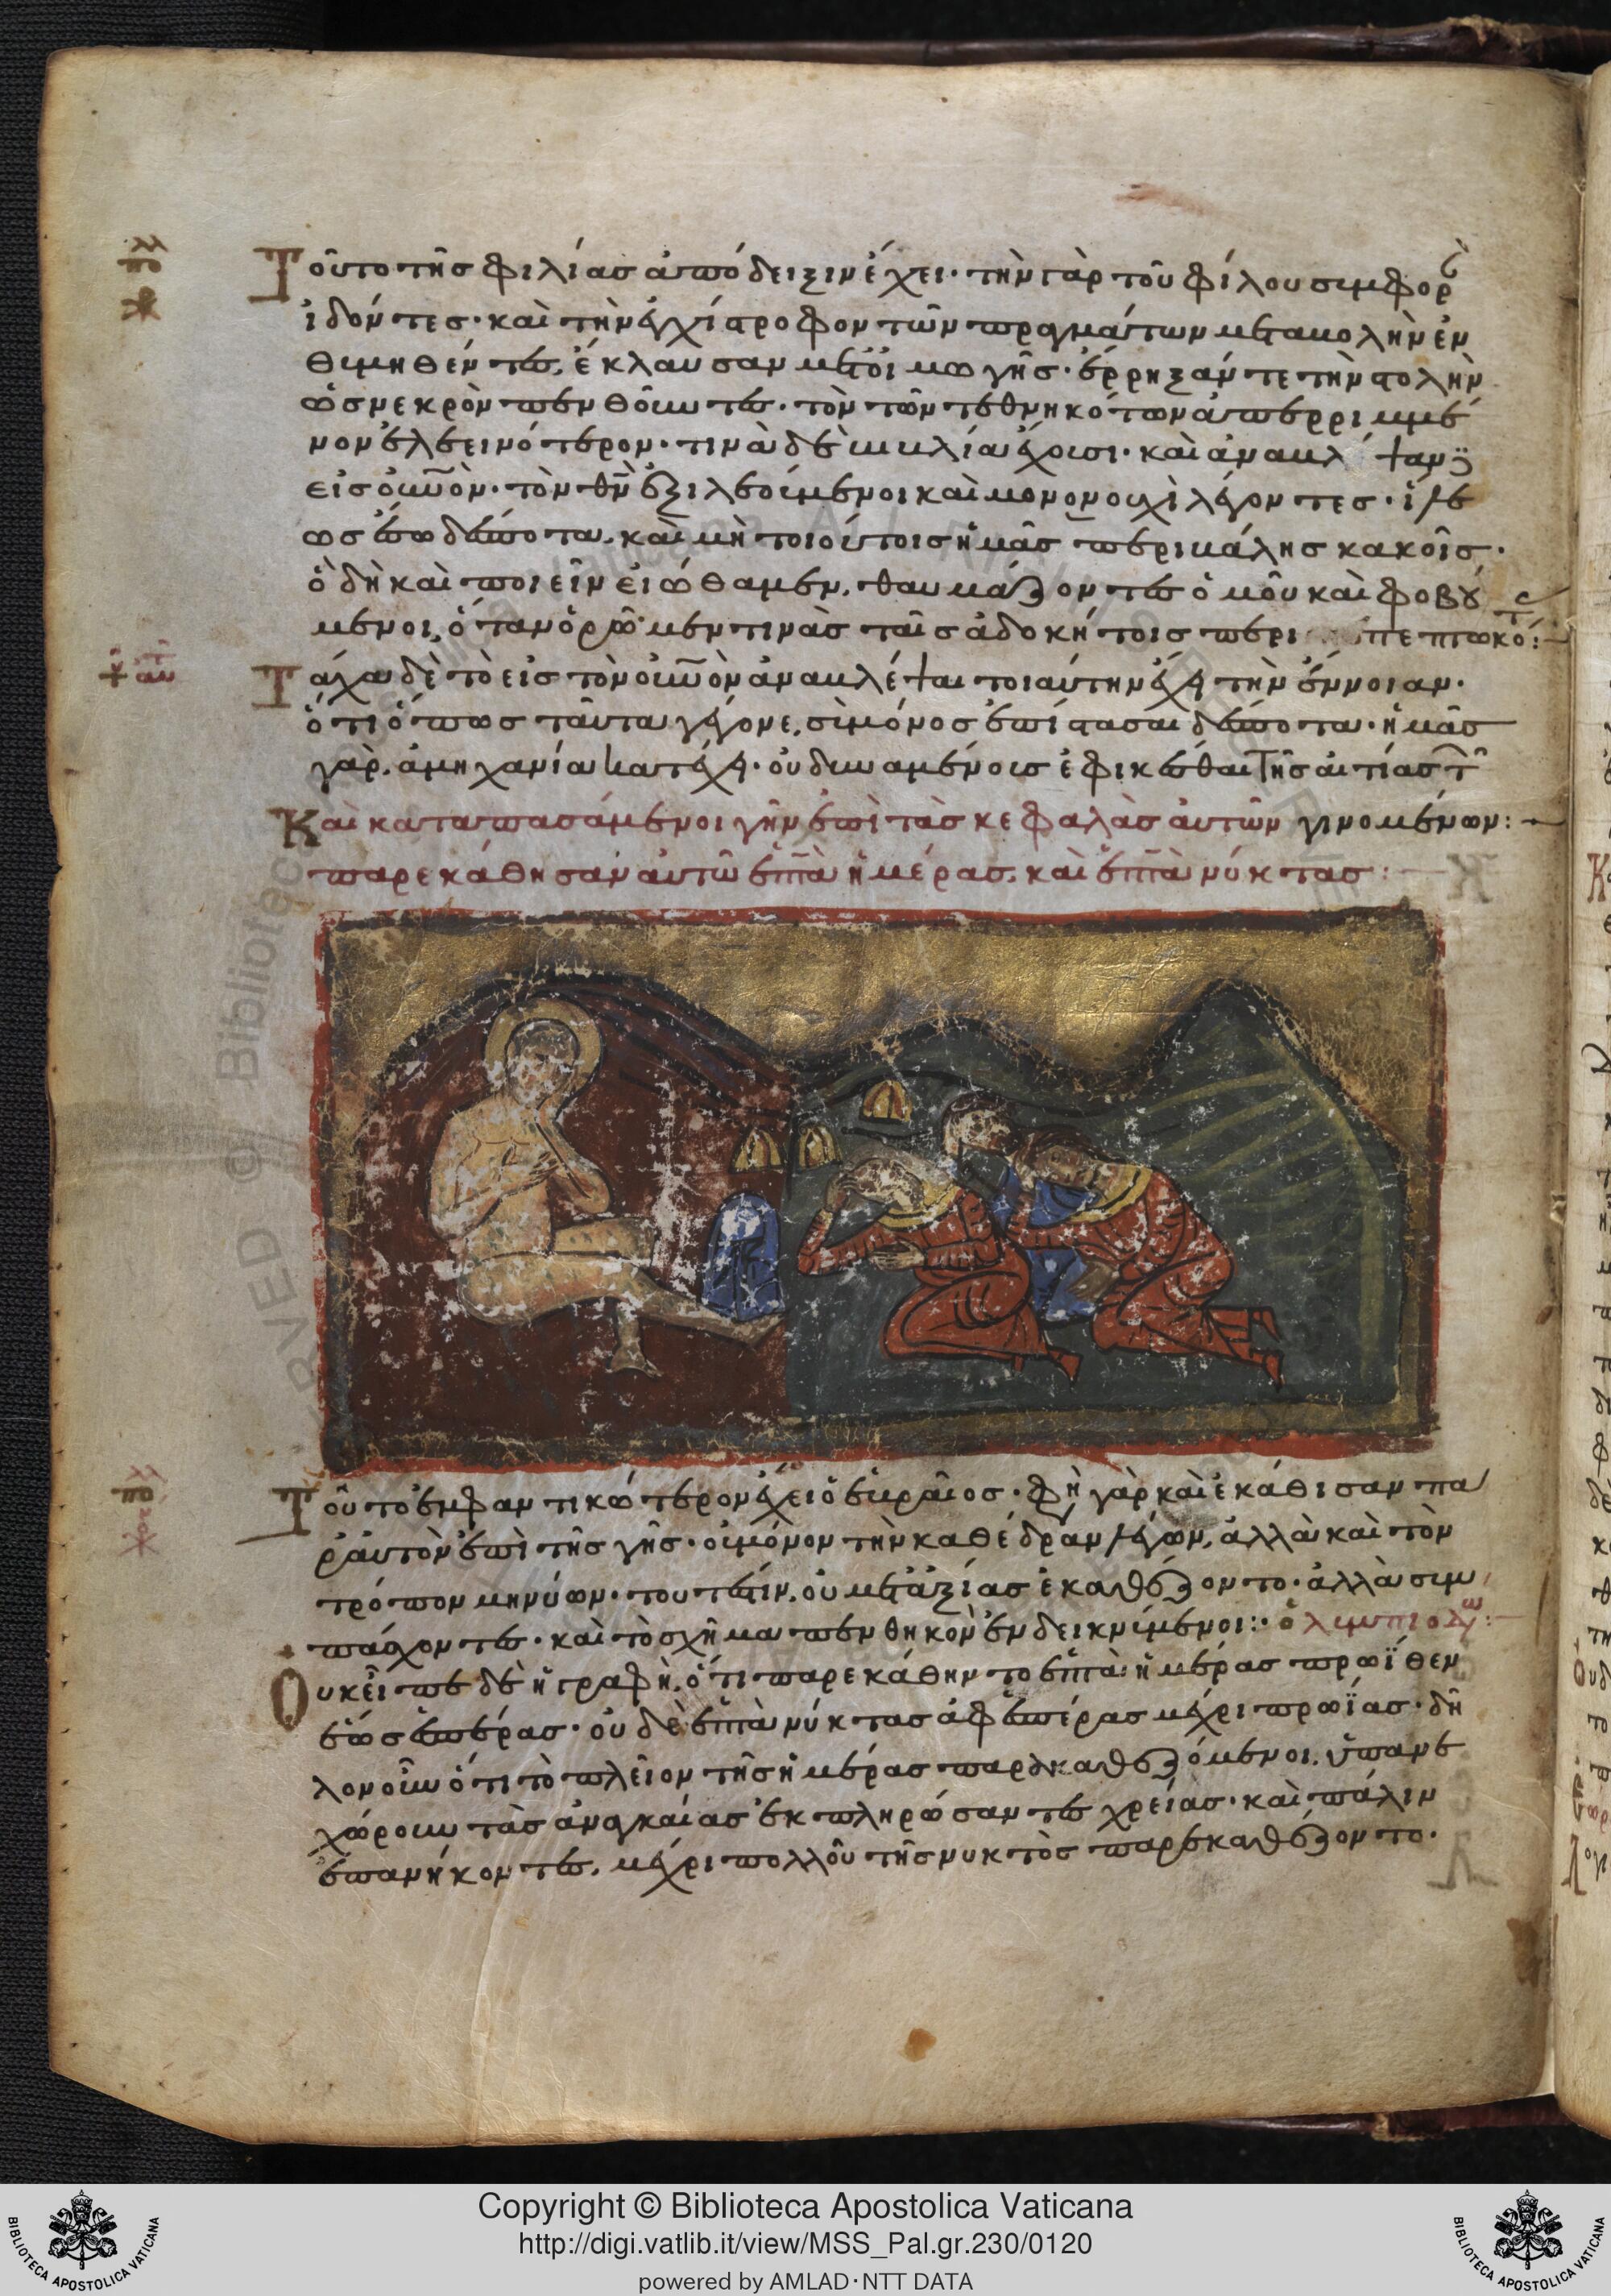 Τοῦτο τῆς φιλίας ἀπόδειξιν ἔχει· τὴν γὰρ τοῦ φίλου συμφορ
ἰδόντες· καὶ τὴν ἀγχίστροφον τῶν πραγμάτων μεταβολὴν ἐν
θυμηθέντες, ἔκλαυσαν μετ' οἰμωγῆς· ἔρρηξάν τε τὴν στολὴν
ὡς νεκρὸν πενθοῦντες· τὸν τῶν τεθνηκότων ἀπερριμμέ
νον ἐλεεινότερον· τινὰ δὲ
εἰς οὐνὸν· τὸν θν ἐξιλεούμενοι καὶ μόνον οὐχὶ λέγοντες· ἵλε
ως ἔσο δέσποτα, καὶ μὴ τοιούτοις ἡμᾶς περιβάλης κακοῖς·
ὃ δὴ καὶ ποιεῖν εἰώθαμεν, θαυμάζοντες ὁμοῦ καὶ φοβού
μενοι, ὅταν ὁρῶμεν τινὰς ταῖς ἀδοκήτοις περι πεπτωκό:
Τάχα δὲ τὸ εἰς τὸν οὐνὸν ἀναβλέψαι τοιαύτην ἔχει τὴν ἔννοιαν·
ὅτι ὅπως ταῦτα γέγονε, σὺ μόνος ἐπίστασαι δέσποτα· ἡμᾶς
γὰρ, ἀμηχανία κατέχει· οὐ δυναμένοις ἐφικέσθαι τῆς αἰτίας τ
Καὶ καταπασάμενοι γῆν ἐπὶ τὰς κεφαλὰς αὐτῶν γινομένων:
παρεκάθησαν αὐτῶ ἑπτὰ ἡμέρας, καὶ ἑπτὰ νύκτας:
Τοῦτο ἐμφαντικώτερον ἔχει ὁ ἑβραῖος· φη γὰρ καὶ ἐκάθισαν πα
ρ' αὐτὸν ἐπὶ τῆς γῆς· οὐ μόνον τὴν καθέδραν λέγων, ἀλλὰ καὶ τὸν
τρόπον μηνύων· τουτέστιν, οὐ μετ' ἀξίας ἐκαθέζοντο· ἀλλὰ συμ
πάσχοντες· καὶ τὸ σχῆμα πενθηκὸν ἐνδεικνύμενοι:· ὀλυμπιοδω:
Οὐκ εἶπε δὲ ἡ γραφὴ, ὅτι παρεκάθηντο ἑπτὰ ἡμέρας πρωΐθεν
ἕως ἑσπέρας· οὐδὲ ἑπτὰ νύκτας ἀφ' ἑσπέρας μέχρι πρωΐας· δῆ
λον οὖν ὅτι τὸ πλεῖον τῆς ἡμέρας παρεκαθεζόμενοι, ὑπανε
χώρουν τὰς ἀναγκαίας ἐκπληρώσαντες χρείας· καὶ πάλιν
ἐπανήκοντες, μέχρι πολλοῦ τῆς νυκτὸς παρεκαθέζοντο·
Copyright © Biblioteca Apostolica Vaticana
http://digi.vatlib.it/view/MSS_Pal.gr.230/0120
powered by AMLAD·NTT DATA
BIBLIOTECA APOSTOLICA VATICANA
BIBLIOTECA APOSTOLICA VATICANA